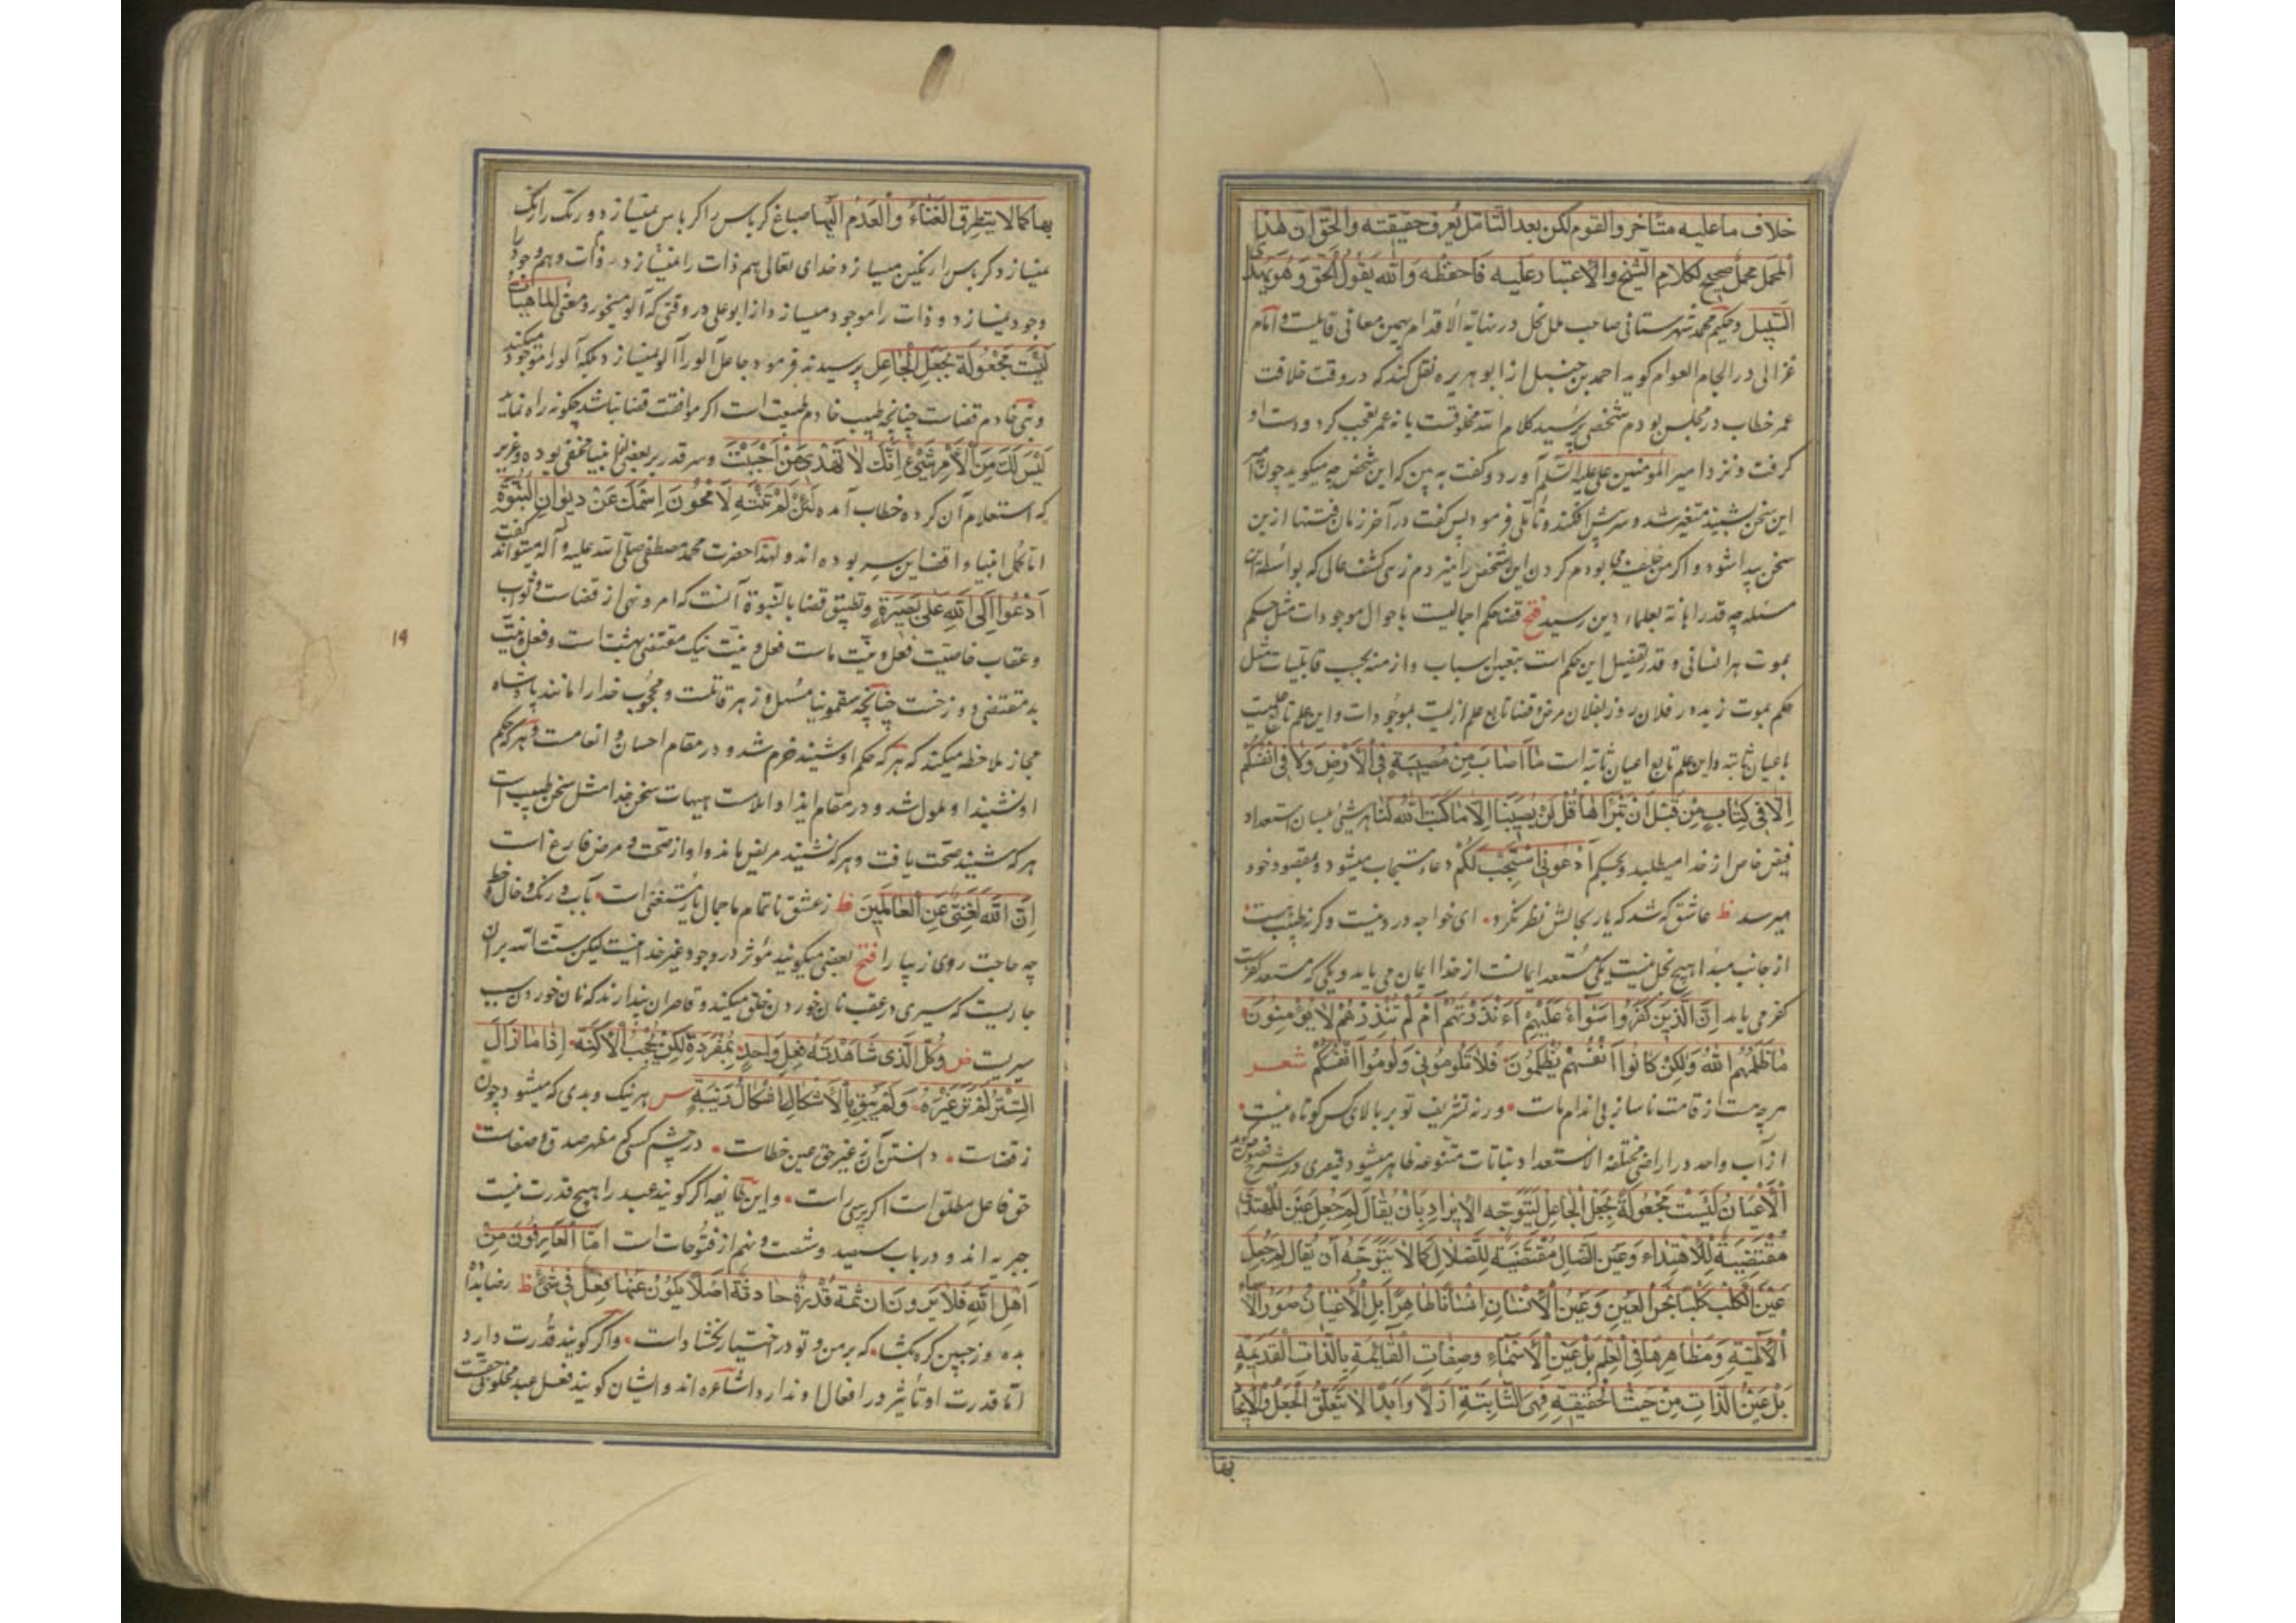 خلاف ما عليه متأخر والقوم لكن بعد التأمل يعرف حقيقته والحق ان هذا
المحمل محمل صحيح لكلام الشيخ والاعتبار عليه فاحفظه والله يقول الحق وهو يهدى
السبيل وحكيم محمد شهرستانى صاحب ملل نحل در نهاية الاقدام بهمين معانى قايلست و امام
غزالى در الجام العوام كويد احمد بن حنبل از ابو هريره نقل كند كه در وقت خلافت
عمر خطاب در مجلس بودم شخصى پرسيد كلام الله مخلوقست يا نه عمر تعجب كرد و دست او
كرفت و نزد امير المومنين على عليه السلم آورد و كفت به بين كه اين شخص چه ميكويد چون امير
اين سخن بشنيد متغير شد و سر پيش افكند و تأملى فرمود پس كفت در آخر زمان فتنها ازين
سخن پيدا شود و اكر من خليفه مى بودم كردن اين شخص را ميزدم زهى كشف عالى كه بواسطه اين
مسئله چه قدر اهانه بعلماء دين رسيد فتح قضا حكم اجماليست باحوال موجودات مثل حكم
بموت هر انسانى و قدر تفصيل اين حكم است بتعيين اسباب و ازمنه بحسب قابليات مثل
حكم بموت زيد در فلان روز بفلان مرض و قضا تابع علم ازليست بموجودات و اين علم تابع علميست
باعيان ثابته و اين علم تابع اعيان ثابته است ما اصاب من مصيبة فى الارض ولا فى انفسكم
الا فى كتاب من قبل ان نبراها قل لن يصيبنا الا ما كتب الله لنا هر شئ بلسان استعداد
فيض خاص از خدا ميطلبد و بحكم ادعونى استجب لكم دعاء مستجاب ميشود و بمقصود خود
ميرسد ظ عاشق كه شد كه يار بحالش نظر نكرد اى خواجه درد نيست وكرنه طبيب هست
از جانب مبدا هيچ بخل نيست يكى مستعد ايمانست از خدا ايمان مى يابد و يكى كه مستعد كفرست
كفر مى يابد ان الذين كفروا سواء عليهم ءانذرتهم ام لم تنذرهم لا يؤمنون
ما ظلمهم الله ولكن كانوا انفسهم يظلمون فلا تلومونى ولوموا انفسكم شعر
هر چه هست از قامت ناساز بى اندام ماست ورنه تشريف تو بر بالاى كس كوتاه نيست
از آب واحد در اراضى مختلفة الاستعداد نباتات متنوعه ظاهر ميشود قيصرى در شرح فصوص كويد
الاعيان ليست مجعولة بجعل الجاعل ليتوجه الايراد بان يقال لم جعل عين المهتدى
مقتضية للاهتداء وعين الضال مقتضية للضلال كما لا يتوجه ان يقال لم جعل
عين الكلب كلبا نجس العين وعين الانسان انسانا طاهرا بل الاعيان صور الاسماء
الالهية ومظاهرها فى العلم بل عين الاسماء وصفات القايمة بالذات القديمة
بل عين الذات من حيث الحقيقة فهى الثابتة ازلا وابدا لا يتعلق الجعل والايجاد
بها
بها كما لا يتطرق الفناء والعدم اليها صباغ كرباس را كرباس نميسازد و رنك را رنك
نميسازد كرباس را رنكين ميسازد خداى تعالى هم ذات را نميسازد ذات و هم وجود را
وجود نميسازد و ذات را موجود ميسازد از ابو على در وقتى كه آلو ميخورد معنى الماهيات
ليست مجعولة بجعل الجاعل پرسيدند فرمود جاعل آلو را آلو نميسازد بلكه آلو را موجود ميكند
و نبى خادم قضاست چنانچه طبيب خادم طبيعت است اكر موافقت قضا نباشد چكونه راه نمايد
ليس لك من الامر شئ انك لا تهدى من احببت و سر قدر بر بعضى انبيا مخفى بوده و عزير
كه استعلام آن كرده خطاب آمده لئن لم تنته لامحون اسمك عن ديوان النبوة
اما كمل انبيا واقف اين سر بوده اند و لهذا حضرت محمد مصطفى صلى الله عليه و آله ميتواند كفت
ادعوا الى الله على بصيرة و تطبيق قضا بالنبوة آنست كه امر و نهى از قضاست و ثواب
و عقاب خاصيت فعل و نيت ماست فعل و نيت نيك مقتضى بهشت است و فعل و نيت
بد مقتضى دوزخست چنانچه سقمونيا مسهل و زهر قاتلست و محجوب خدا را مانند پادشاه
مجاز ملاحظه ميكند كه هر كه حكم او شنيد خرم شد و در مقام احسان و انعامست و هر كه حكم
او نشنيد او ملول شد و در مقام ايذا و ايلامست هيهات سخن خدا مثل سخن طبيب است
هر كه شنيد صحت يافت و هر كه نشنيد مريض ماند و او از صحت و مرض فارغ است
ان الله لغنى عن العالمين ظ ز عشق ناتمام ما جمال يار مستغنى است بآب و رنك و خال و خط
چه حاجت روى زيبا را فتح بعضى ميكويند مؤثر در وجود غير خدا نيست ليكن سنت الله بران
جاريست كه سيرى در عقب نان خوردن خلق ميكند و قاصران پندارند كه نان خوردن سبب
سيريست ض وكل الذى شاهدته فعل واحد بمفرده لكن بحجب الاكنة اذا ما ازال
الستر لم تر غيره ولم يبق بالاشكال اشكال ريبة س هر نيك و بدى كه ميشود چون
ز قضاست دانستن آن ز غير حق عين خطاست در چشم كسى كه مظهر صدق و صفاست
حق فاعل مطلق است اكر پرسى راست و اين طايفه اكر كويند عبد را هيچ قدرت نيست
جبريه اند و در باب سيصد و شصت و نهم از فتوحات است اما العارفون من
اهل الله فلا يرون ان ثمة قدرة حادثة اصلا يكون عنها فعل فى شئ ظ رضا بداده
بده وز جبين كره بكشا كه بر من و تو در اختيار نكشادست و اكر كويند قدرت دارد
اما قدرت او تأثير در افعال او ندارد اشاعره اند و ايشان كويند فعل عبد مخلوق حقست
۱۹